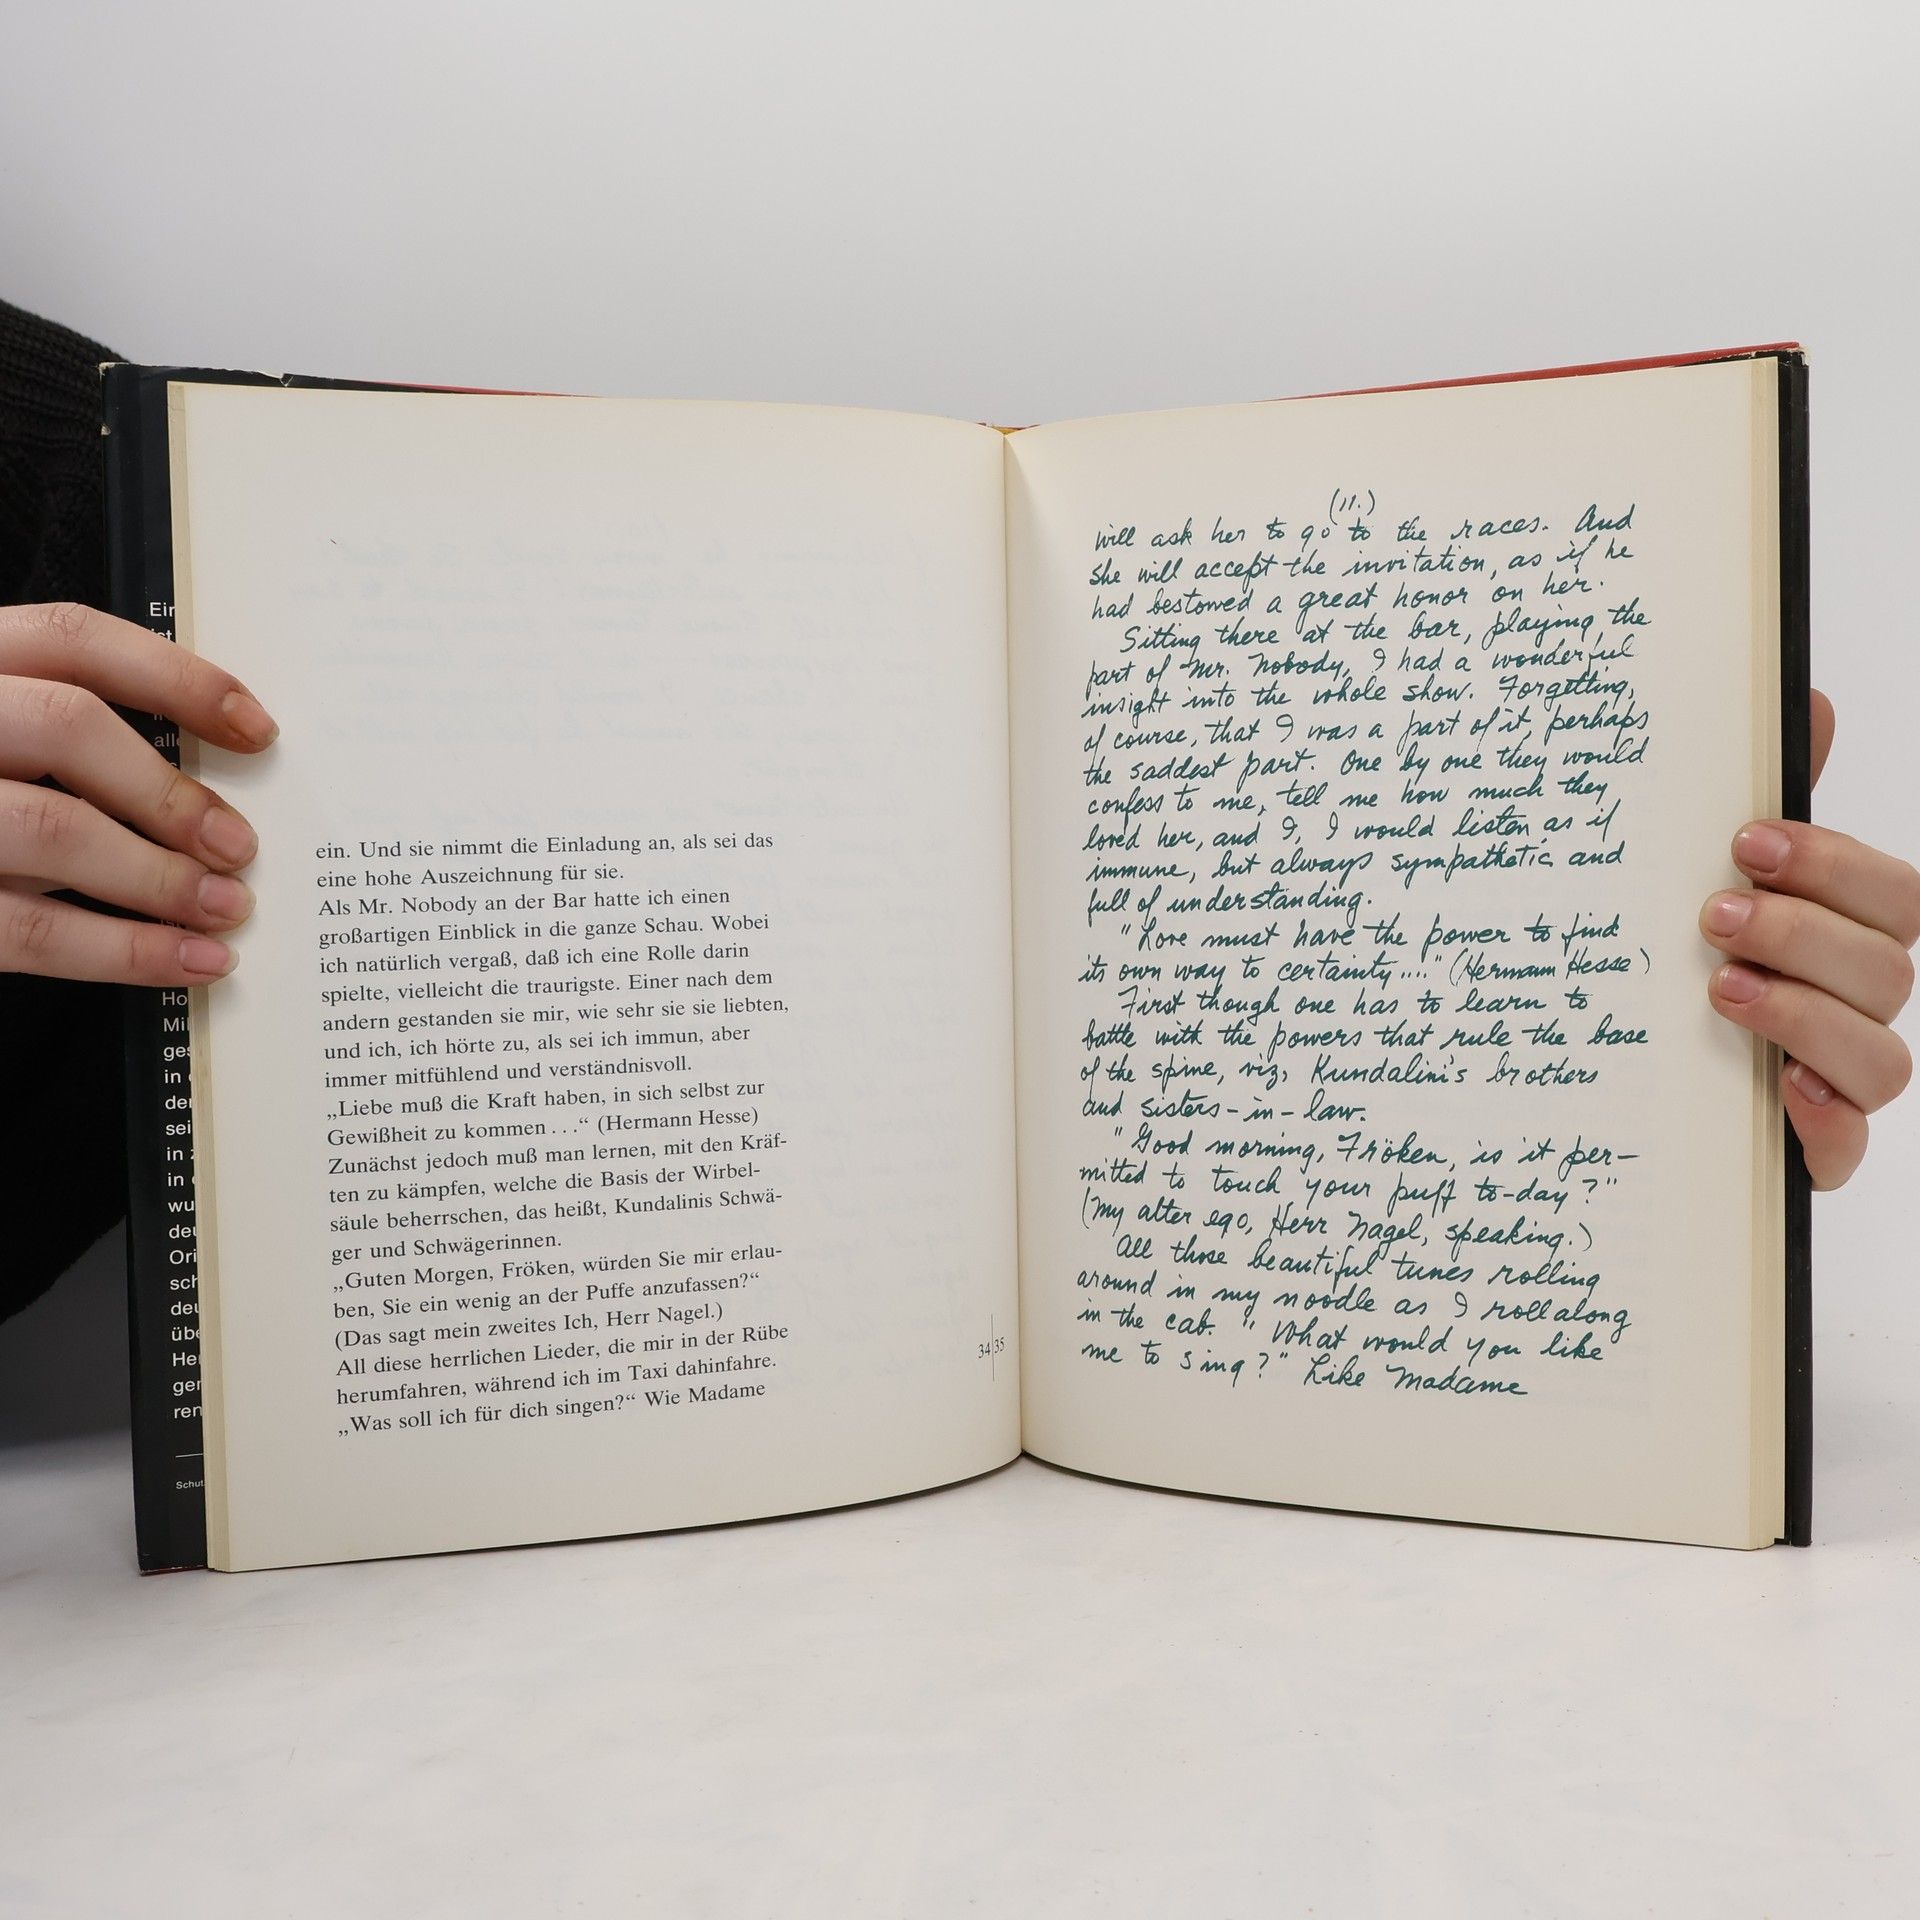 Ein
ist
alle
Ho
Mil
ges
in
der
sei
in
in
wu
deu
Ori
sch
deu
übe
Her
ger
ren
Schut
ein. Und sie nimmt die Einladung an, als sei das
eine hohe Auszeichnung für sie.
Als Mr. Nobody an der Bar hatte ich einen
großartigen Einblick in die ganze Schau. Wobei
ich natürlich vergaß, daß ich eine Rolle darin
spielte, vielleicht die traurigste. Einer nach dem
andern gestanden sie mir, wie sehr sie sie liebten,
und ich, ich hörte zu, als sei ich immun, aber
immer mitfühlend und verständnisvoll.
„Liebe muß die Kraft haben, in sich selbst zur
Gewißheit zu kommen . . .“ (Hermann Hesse)
Zunächst jedoch muß man lernen, mit den Kräf-
ten zu kämpfen, welche die Basis der Wirbel-
säule beherrschen, das heißt, Kundalinis Schwä-
ger und Schwägerinnen.
„Guten Morgen, Fröken, würden Sie mir erlau-
ben, Sie ein wenig an der Puffe anzufassen?“
(Das sagt mein zweites Ich, Herr Nagel.)
All diese herrlichen Lieder, die mir in der Rübe
herumfahren, während ich im Taxi dahinfahre.
„Was soll ich für dich singen?“ Wie Madame
34 35
(11.)
will ask her to go to the races. And
she will accept the invitation, as if he
had bestowed a great honor on her.
Sitting there at the bar, playing the
part of Mr. Nobody, I had a wonderful
insight into the whole show. Forgetting,
of course, that I was a part of it, perhaps
the saddest part. One by one they would
confess to me, tell me how much they
loved her, and I, I would listen as if
immune, but always sympathetic and
full of understanding.
"Love must have the power to find
its own way to certainty...." (Hermann Hesse)
First though one has to learn to
battle with the powers that rule the base
of the spine, viz, Kundalini's brothers
and sisters-in-law.
"Good morning, Fröken, is it per-
mitted to touch your puff to-day?"
(My alter ego, Herr Nagel, speaking.)
All those beautiful tunes rolling
around in my noodle as I roll along
in the cab. "What would you like
me to sing?" Like Madame